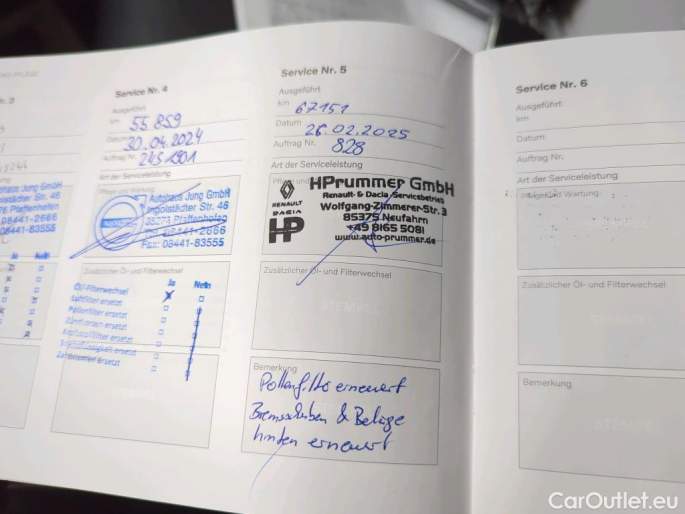 Service Nr. 4
Ausgeführt
km 55 859
Datum 30.04.2024
Auftrag Nr. 2451901
Art der Serviceleistung
Autohaus Jung GmbH
Ingolstädter Str. 46
85273 Pfaffenhofen
08441-2666
Fax: 08441-83555
Zusätzlicher Öl- und Filterwechsel
Ja Nein
Öl/Filterwechsel
Luftfilter ersetzt
Pollenfilter ersetzt
Service Nr. 5
Ausgeführt
km 67151
Datum 26.02.2025
Auftrag Nr. 828
Art der Serviceleistung
RENAULT
DACIA
HP
HPrummer GmbH
Renault- & Dacia Servicebetrieb
Wolfgang-Zimmerer-Str. 3
85375 Neufahrn
+49 8165 5081
www.auto-prummer.de
Zusätzlicher Öl- und Filterwechsel
Bemerkung
Pollenfilter erneuert
Bremsscheiben & Beläge
hinten erneuert
Service Nr. 6
Ausgeführt
km
Datum
Auftrag Nr.
Art der Serviceleistung
Zusätzlicher Öl- und Filterwechsel
Bemerkung
CarOutlet.eu